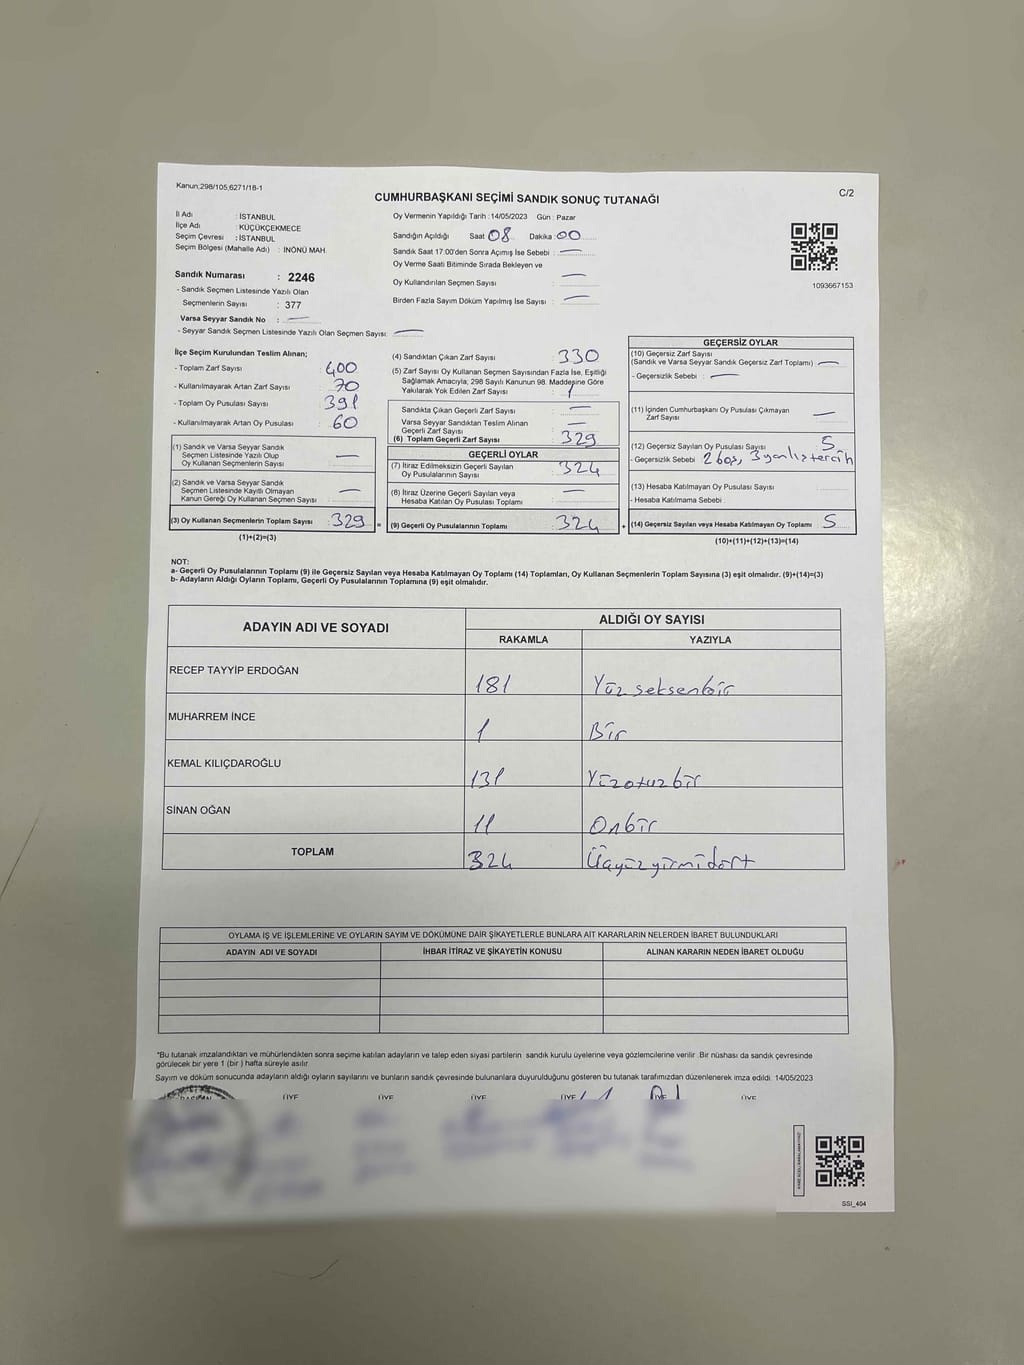 Kanun,298/105,6271/18-1
C/2
CUMHURBAŞKANI SEÇİMİ SANDIK SONUÇ TUTANAĞI
İl Adı : İSTANBUL
İlçe Adı : KÜÇÜKÇEKMECE
Seçim Çevresi : İSTANBUL
Seçim Bölgesi (Mahalle Adı) : İNÖNÜ MAH.
Sandık Numarası : 2246
- Sandık Seçmen Listesinde Yazılı Olan
Seçmenlerin Sayısı : 377
Varsa Seyyar Sandık No : —
- Seyyar Sandık Seçmen Listesinde Yazılı Olan Seçmen Sayısı: —
Oy Vermenin Yapıldığı Tarih : 14/05/2023 Gün : Pazar
Sandığın Açıldığı Saat 08 Dakika : 00
Sandık Saat 17:00'den Sonra Açımış İse Sebebi : —
Oy Verme Saati Bitiminde Sırada Bekleyen ve
Oy Kullandırılan Seçmen Sayısı : —
Birden Fazla Sayım Döküm Yapılmış İse Sayısı : —
1093667153
İlçe Seçim Kurulundan Teslim Alınan;
- Toplam Zarf Sayısı : 400
- Kullanılmayarak Artan Zarf Sayısı : 70
- Toplam Oy Pusulası Sayısı : 391
- Kullanılmayarak Artan Oy Pusulası : 60
(1) Sandık ve Varsa Seyyar Sandık
Seçmen Listesinde Yazılı Olup
Oy Kullanan Seçmenlerin Sayısı : —
(2) Sandık ve Varsa Seyyar Sandık
Seçmen Listesinde Kayıtlı Olmayan
Kanun Gereği Oy Kullanan Seçmen Sayısı : —
(3) Oy Kullanan Seçmenlerin Toplam Sayısı : 329 =
(1)+(2)=(3)
(4) Sandıktan Çıkan Zarf Sayısı : 330
(5) Zarf Sayısı Oy Kullanan Seçmen Sayısından Fazla İse, Eşitliği
Sağlamak Amacıyla, 298 Sayılı Kanunun 98. Maddesine Göre
Yakılarak Yok Edilen Zarf Sayısı : 1
Sandıkta Çıkan Geçerli Zarf Sayısı : —
Varsa Seyyar Sandıktan Teslim Alınan
Geçerli Zarf Sayısı : —
(6) Toplam Geçerli Zarf Sayısı : 329
GEÇERLİ OYLAR
(7) İtiraz Edilmeksizin Geçerli Sayılan
Oy Pusulalarının Sayısı : 324
(8) İtiraz Üzerine Geçerli Sayılan veya
Hesaba Katılan Oy Pusulası Toplamı : —
(9) Geçerli Oy Pusulalarının Toplamı : 324 +
GEÇERSİZ OYLAR
(10) Geçersiz Zarf Sayısı
(Sandık ve Varsa Seyyar Sandık Geçersiz Zarf Toplamı) : —
- Geçersizlik Sebebi : —
(11) İçinden Cumhurbaşkanı Oy Pusulası Çıkmayan
Zarf Sayısı : —
(12) Geçersiz Sayılan Oy Pusulası Sayısı : 5
- Geçersizlik Sebebi 2 boş, 3 yanlış tercih
(13) Hesaba Katılmayan Oy Pusulası Sayısı :
- Hesaba Katılmama Sebebi :
(14) Geçersiz Sayılan veya Hesaba Katılmayan Oy Toplamı : 5
(10)+(11)+(12)+(13)=(14)
NOT:
a- Geçerli Oy Pusulalarının Toplamı (9) ile Geçersiz Sayılan veya Hesaba Katılmayan Oy Toplamı (14) Toplamları, Oy Kullanan Seçmenlerin Toplam Sayısına (3) eşit olmalıdır. (9)+(14)=(3)
b- Adayların Aldığı Oyların Toplamı, Geçerli Oy Pusulalarının Toplamına (9) eşit olmalıdır.
ADAYIN ADI VE SOYADI
ALDIĞI OY SAYISI
RAKAMLA YAZIYLA
RECEP TAYYİP ERDOĞAN 181 Yüz seksenbir
MUHARREM İNCE 1 Bir
KEMAL KILIÇDAROĞLU 131 Yüzotuzbir
SİNAN OĞAN 11 Onbir
TOPLAM 324 Üçyüzyirmidört
OYLAMA İŞ VE İŞLEMLERİNE VE OYLARIN SAYIM VE DÖKÜMÜNE DAİR ŞİKAYETLERLE BUNLARA AİT KARARLARIN NELERDEN İBARET BULUNDUKLARI
ADAYIN ADI VE SOYADI İHBAR İTİRAZ VE ŞİKAYETİN KONUSU ALINAN KARARIN NEDEN İBARET OLDUĞU
*Bu tutanak imzalandıktan ve mühürlendikten sonra seçime katılan adayların ve talep eden siyasi partilerin sandık kurulu üyelerine veya gözlemcilerine verilir. Bir nüshası da sandık çevresinde
görülecek bir yere 1 (bir) hafta süreyle asılır.
Sayım ve döküm sonucunda adayların aldığı oyların sayılarını ve bunların sandık çevresinde bulunanlara duyurulduğunu gösteren bu tutanak tarafımızdan düzenlenerek imza edildi. 14/05/2023
ÜYE ÜYE ÜYE ÜYE ÜYE ÜYE
SSI_404